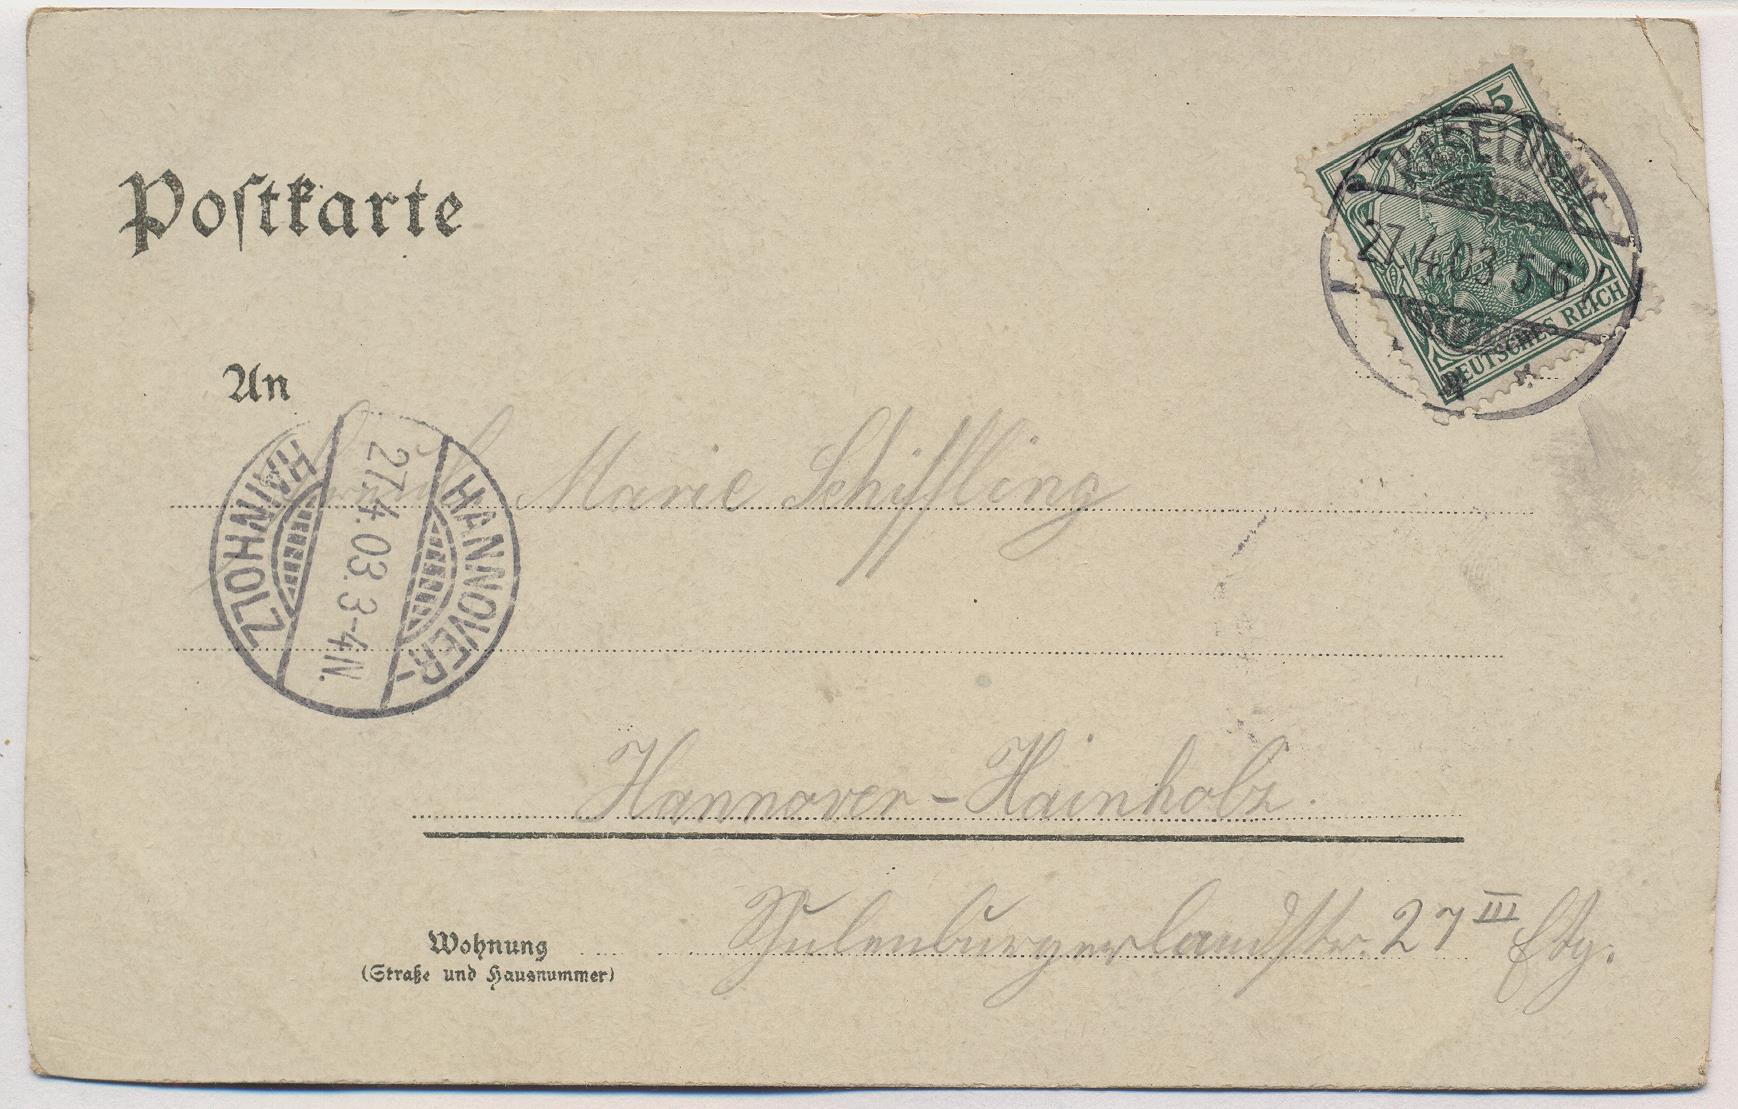 Postkarte
5
27.4.03 5-6
DEUTSCHES REICH
An
HANNOVER-
HAINHOLZ
27.4.03. 3-4N.
Marie Schiffling
Hannover-Hainholz.
Wohnung
(Straße und Hausnummer)
Schulenburgerlandstr. 27 III Etg.